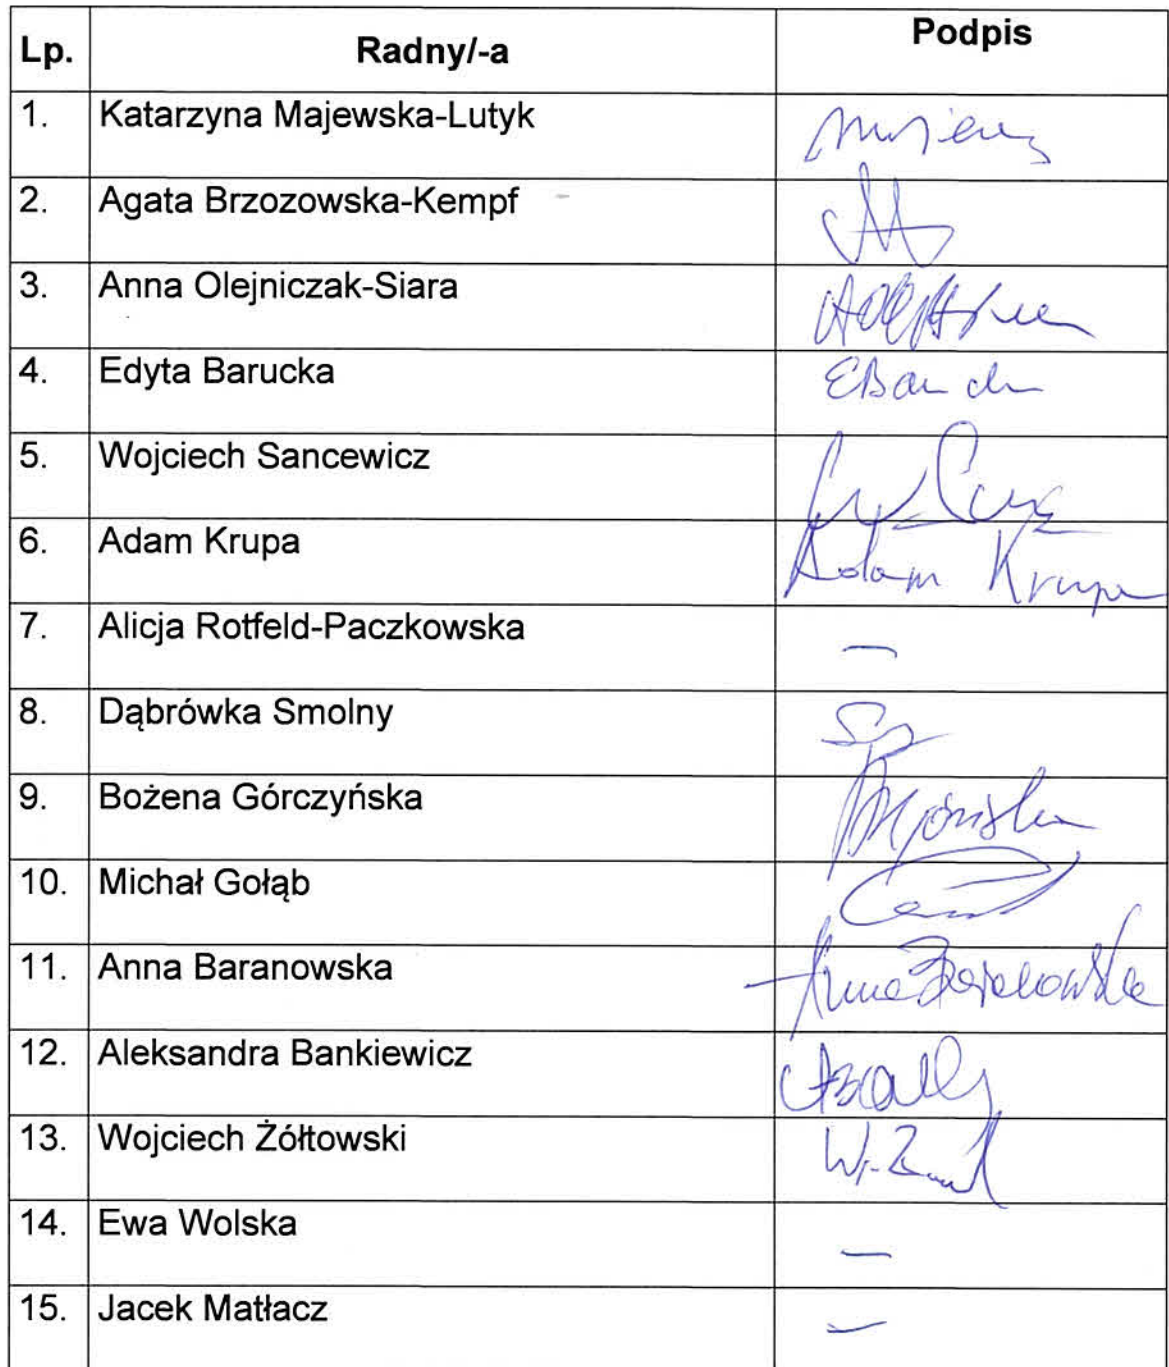 Lp. Radny/-a Podpis
1. Katarzyna Majewska-Lutyk
2. Agata Brzozowska-Kempf
3. Anna Olejniczak-Siara
4. Edyta Barucka
5. Wojciech Sancewicz
6. Adam Krupa Adam Krupa
7. Alicja Rotfeld-Paczkowska —
8. Dąbrówka Smolny
9. Bożena Górczyńska
10. Michał Gołąb
11. Anna Baranowska
12. Aleksandra Bankiewicz
13. Wojciech Żółtowski
14. Ewa Wolska —
15. Jacek Matłacz —